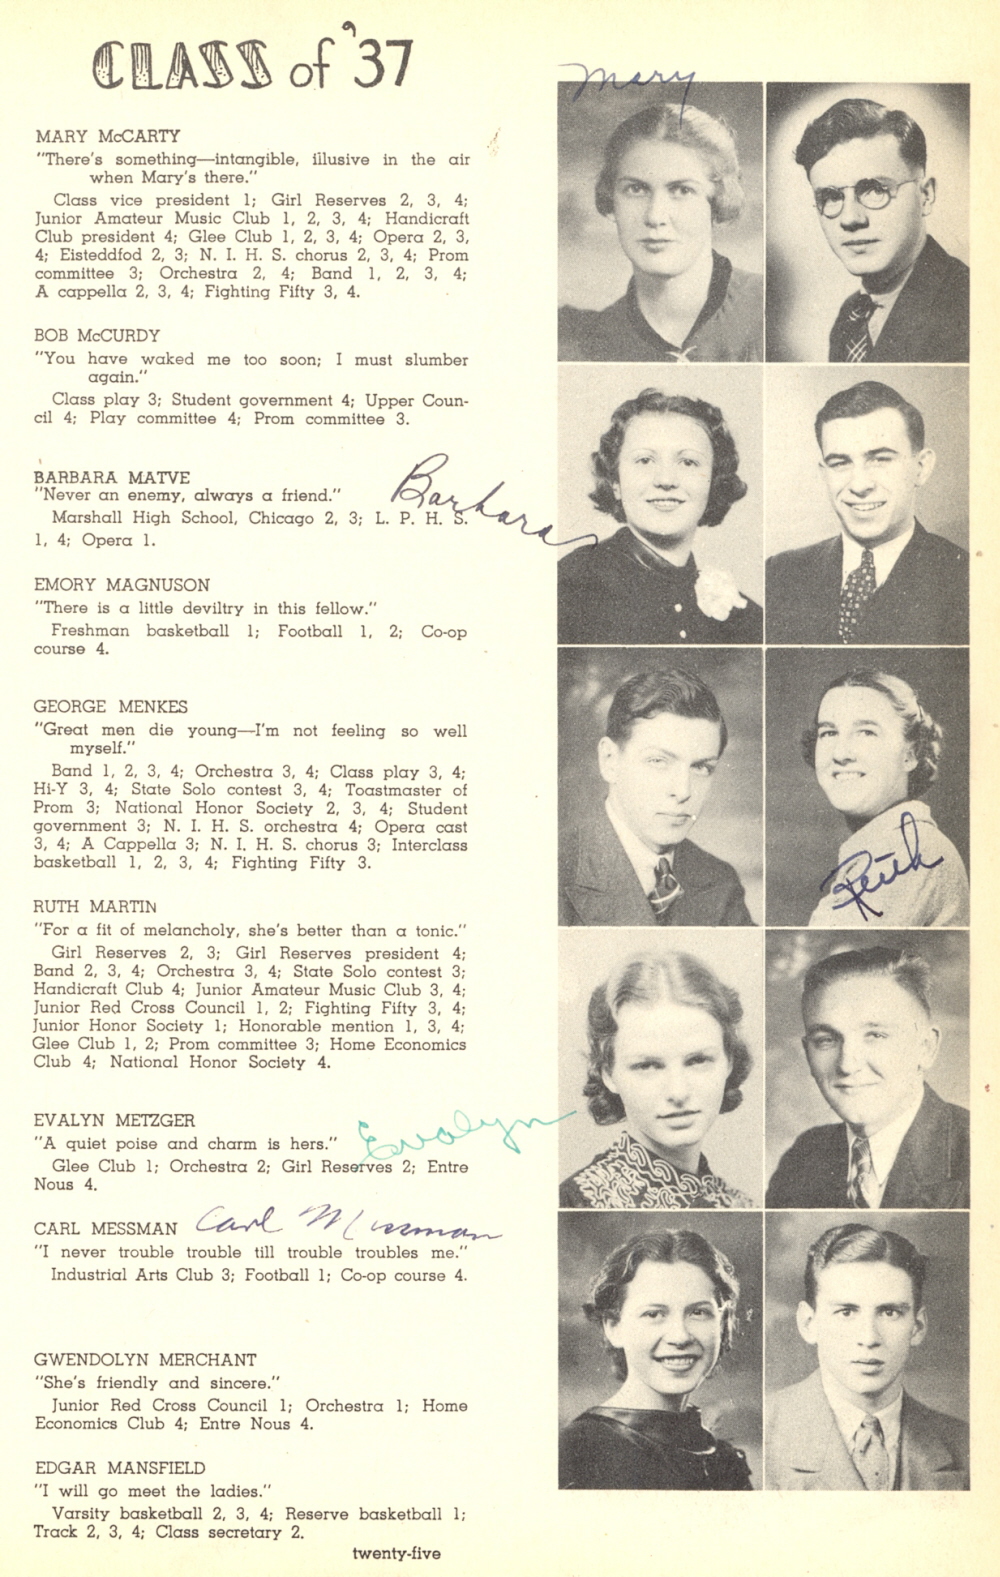 CLASS of '37
Mary
MARY McCARTY
"There's something—intangible, illusive in the air
when Mary's there."
Class vice president 1; Girl Reserves 2, 3, 4;
Junior Amateur Music Club 1, 2, 3, 4; Handicraft
Club president 4; Glee Club 1, 2, 3, 4; Opera 2, 3,
4; Eisteddfod 2, 3; N. I. H. S. chorus 2, 3, 4; Prom
committee 3; Orchestra 2, 4; Band 1, 2, 3, 4;
A cappella 2, 3, 4; Fighting Fifty 3, 4.
BOB McCURDY
"You have waked me too soon; I must slumber
again."
Class play 3; Student government 4; Upper Coun-
cil 4; Play committee 4; Prom committee 3.
BARBARA MATVE
"Never an enemy, always a friend."
Barbara
Marshall High School, Chicago 2, 3; L. P. H. S.
1, 4; Opera 1.
EMORY MAGNUSON
"There is a little deviltry in this fellow."
Freshman basketball 1; Football 1, 2; Co-op
course 4.
GEORGE MENKES
"Great men die young—I'm not feeling so well
myself."
Band 1, 2, 3, 4; Orchestra 3, 4; Class play 3, 4;
Hi-Y 3, 4; State Solo contest 3, 4; Toastmaster of
Prom 3; National Honor Society 2, 3, 4; Student
government 3; N. I. H. S. orchestra 4; Opera cast
3, 4; A Cappella 3; N. I. H. S. chorus 3; Interclass
basketball 1, 2, 3, 4; Fighting Fifty 3.
Ruth
RUTH MARTIN
"For a fit of melancholy, she's better than a tonic."
Girl Reserves 2, 3; Girl Reserves president 4;
Band 2, 3, 4; Orchestra 3, 4; State Solo contest 3;
Handicraft Club 4; Junior Amateur Music Club 3, 4;
Junior Red Cross Council 1, 2; Fighting Fifty 3, 4;
Junior Honor Society 1; Honorable mention 1, 3, 4;
Glee Club 1, 2; Prom committee 3; Home Economics
Club 4; National Honor Society 4.
EVALYN METZGER
Evalyn
"A quiet poise and charm is hers."
Glee Club 1; Orchestra 2; Girl Reserves 2; Entre
Nous 4.
CARL MESSMAN
Carl Messman
"I never trouble trouble till trouble troubles me."
Industrial Arts Club 3; Football 1; Co-op course 4.
GWENDOLYN MERCHANT
"She's friendly and sincere."
Junior Red Cross Council 1; Orchestra 1; Home
Economics Club 4; Entre Nous 4.
EDGAR MANSFIELD
"I will go meet the ladies."
Varsity basketball 2, 3, 4; Reserve basketball 1;
Track 2, 3, 4; Class secretary 2.
twenty-five